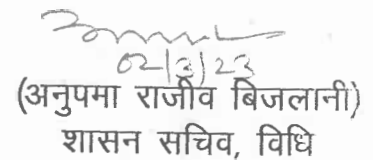 02/3/23
(अनुपमा राजीव बिजलानी)
शासन सचिव, विधि